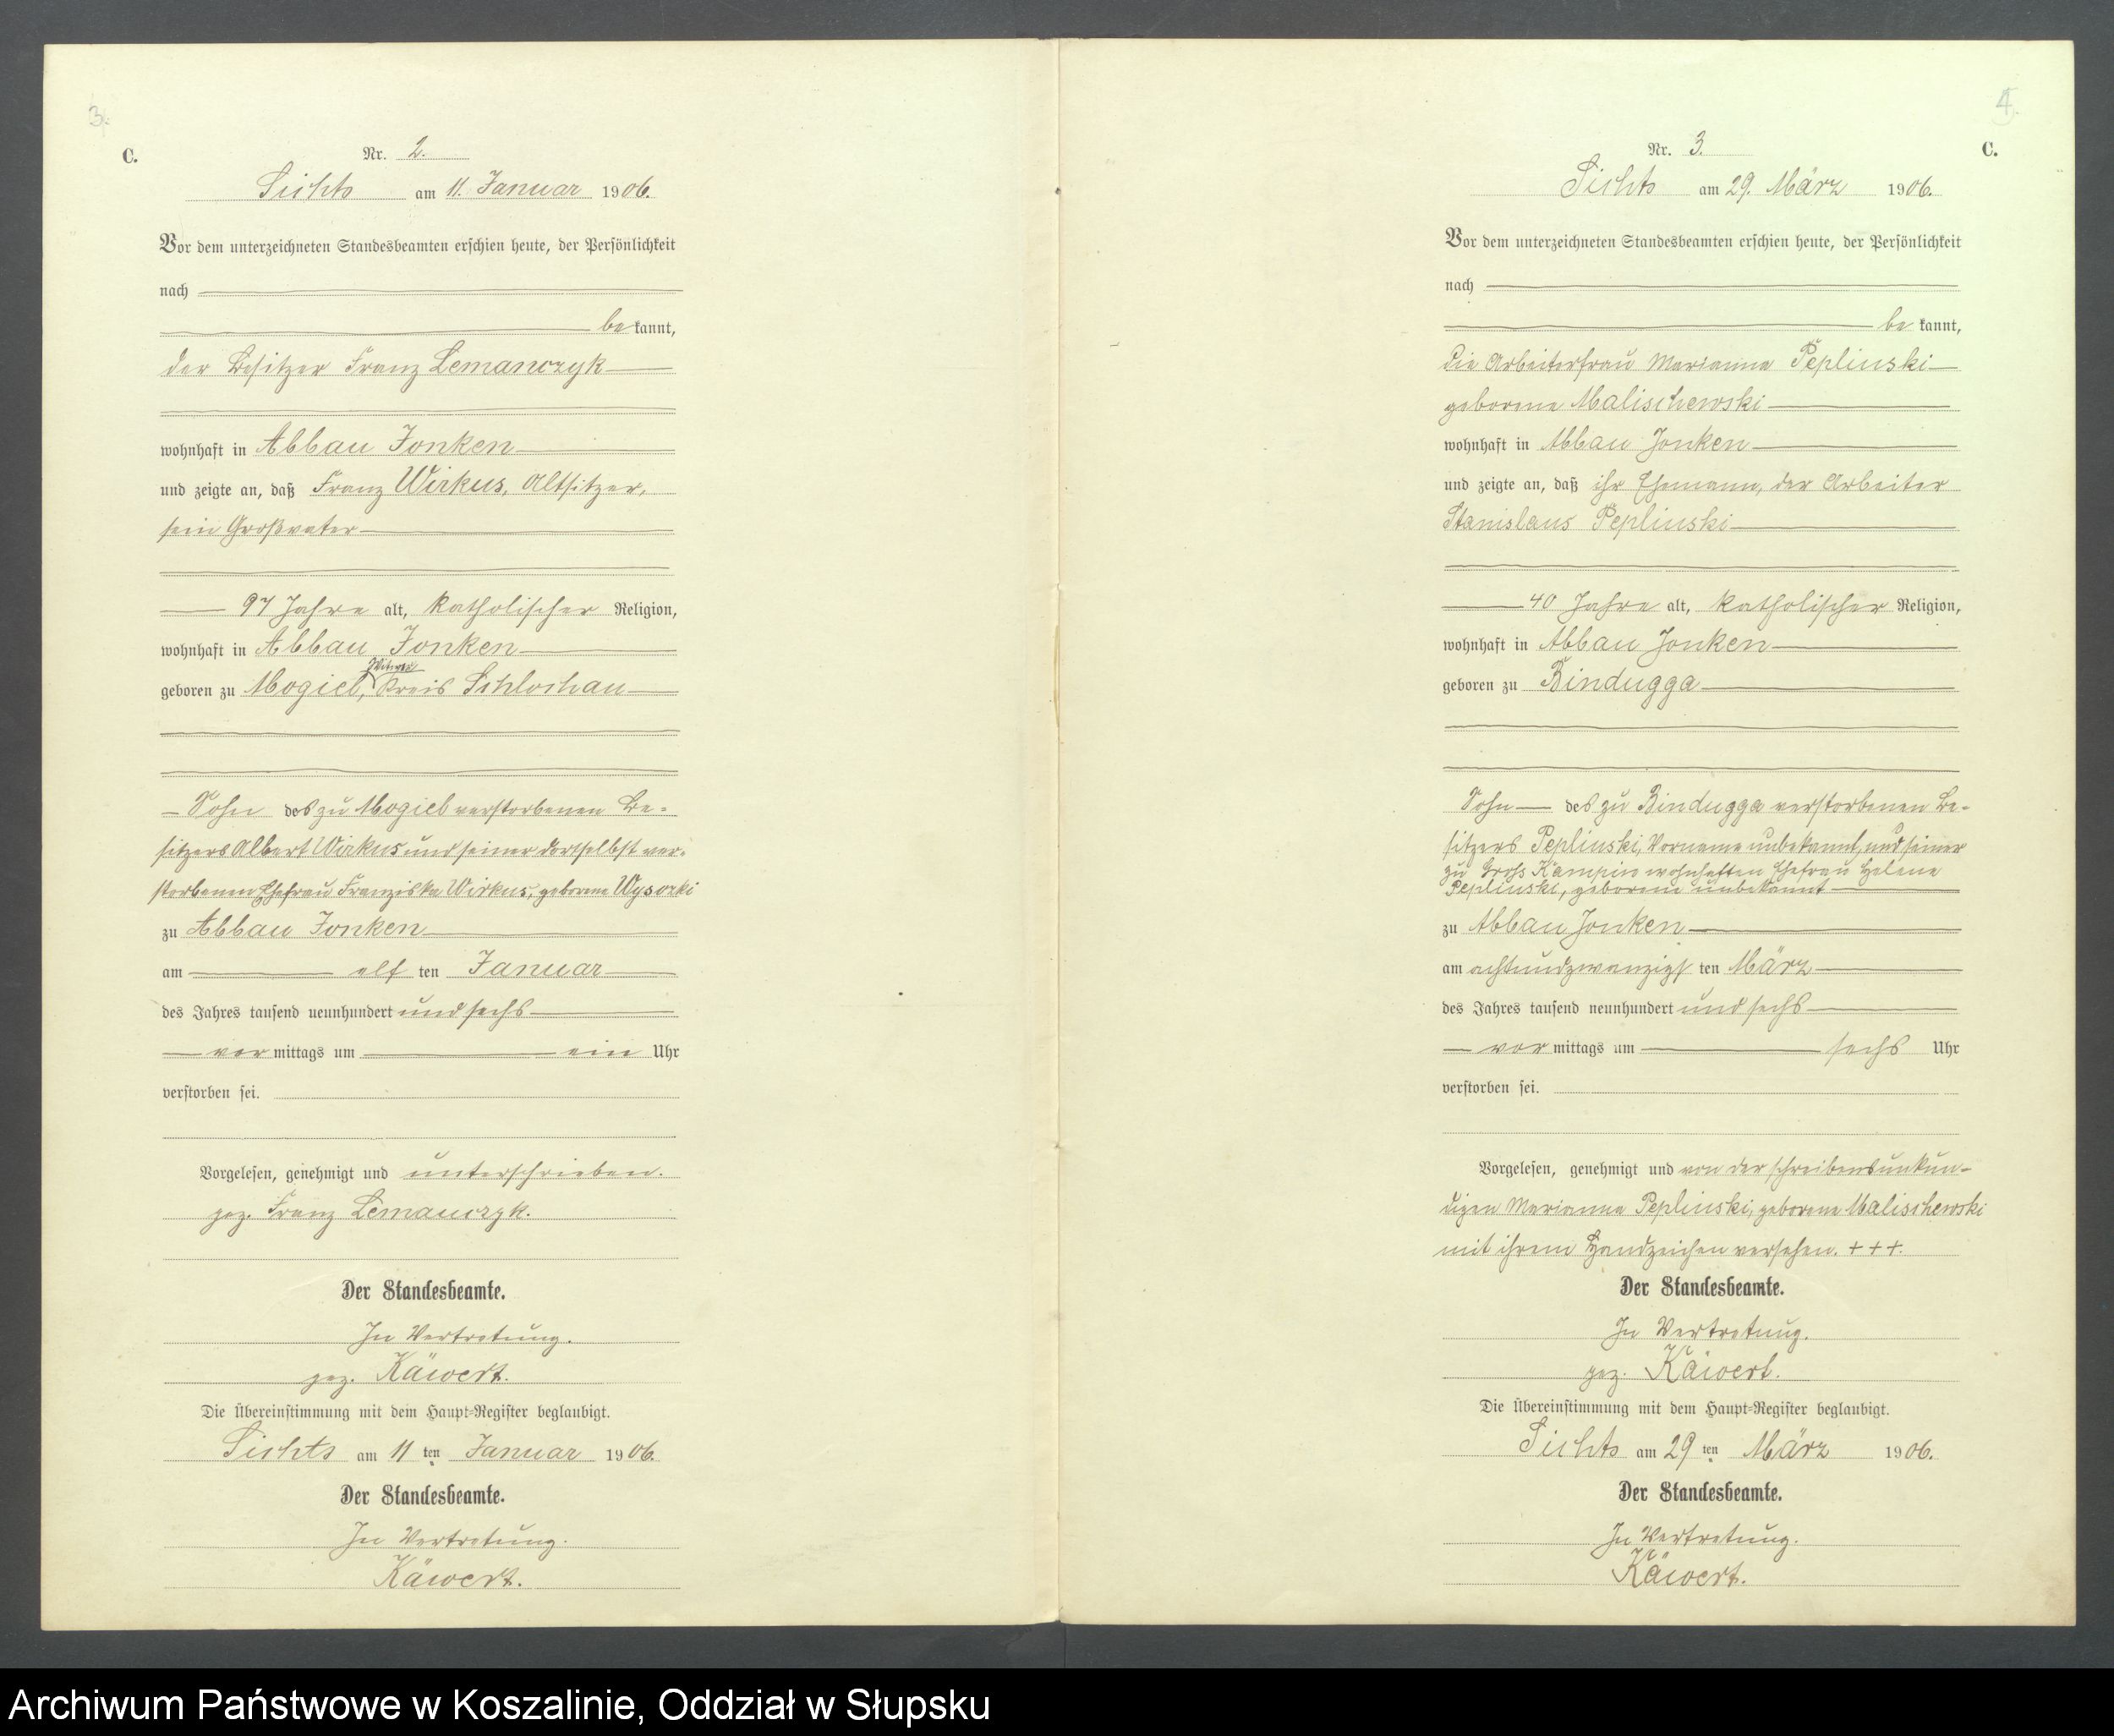 3.
C.
Nr. 2.
Sichts am 11. Januar 1906.
Vor dem unterzeichneten Standesbeamten erschien heute, der Persönlichkeit
nach
be kannt,
der Besitzer Franz Lemanczyk
wohnhaft in Abbau Jonken
und zeigte an, daß Franz Wirkus, Altsitzer,
sein Großvater
97 Jahre alt, katholischer Religion,
wohnhaft in Abbau Jonken
Witwer
geboren zu Mogiel, Kreis Schlochau
Sohn des zu Mogiel verstorbenen Be=
sitzers Albert Wirkus und seiner dortselbst ver=
storbenen Ehefrau Franziska Wirkus, geborene Wysocki
zu Abbau Jonken
am elf ten Januar
des Jahres tausend neunhundert und sechs
vor mittags um ein Uhr
verstorben sei.
Vorgelesen, genehmigt und unterschrieben.
gez. Franz Lemanczyk.
Der Standesbeamte.
In Vertretung.
gez. Käwert.
Die Übereinstimmung mit dem Haupt=Register beglaubigt.
Sichts am 11 ten Januar 1906.
Der Standesbeamte.
In Vertretung.
Käwert.
4.
C.
Nr. 3.
Sichts am 29. März 1906.
Vor dem unterzeichneten Standesbeamten erschien heute, der Persönlichkeit
nach
be kannt,
die Arbeiterfrau Marianna Peplinski
geborene Malischewski
wohnhaft in Abbau Jonken
und zeigte an, daß ihr Ehemann, der Arbeiter
Stanislaus Peplinski
40 Jahre alt, katholischer Religion,
wohnhaft in Abbau Jonken
geboren zu Bindugga
Sohn des zu Bindugga verstorbenen Be=
sitzers Peplinski, Vorname unbekannt, und seiner
zu Gross Kampin wohnhaften Ehefrau Helene
Peplinski, geborene unbekannt
zu Abbau Jonken
am achtundzwanzigs ten März
des Jahres tausend neunhundert und sechs
vor mittags um sechs Uhr
verstorben sei.
Vorgelesen, genehmigt und von der schreibensunkun=
digen Marianna Peplinski, geborene Malischewski
mit ihrem Handzeichen versehen. +++.
Der Standesbeamte.
In Vertretung.
gez. Käwert.
Die Übereinstimmung mit dem Haupt=Register beglaubigt.
Sichts am 29 ten März 1906.
Der Standesbeamte.
In Vertretung.
Käwert.
Archiwum Państwowe w Koszalinie, Oddział w Słupsku